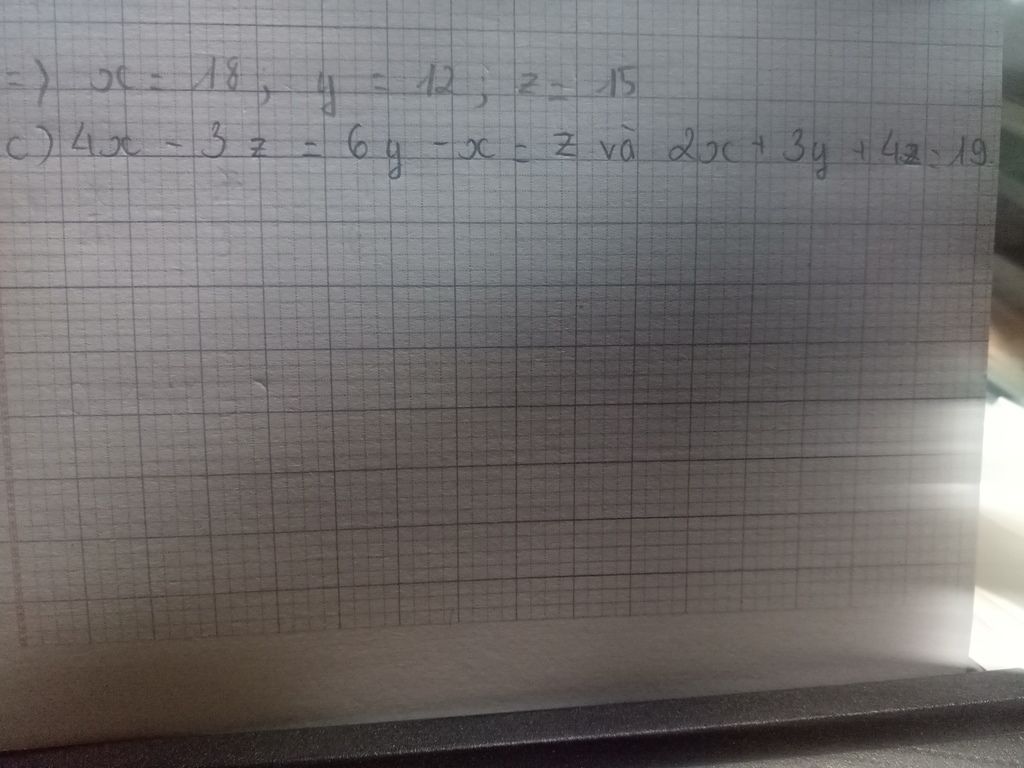 =) x = 18 ; y = 12 ; z = 15
c) 4x - 3z = 6y - x = z và 2x + 3y + 4z = 19.